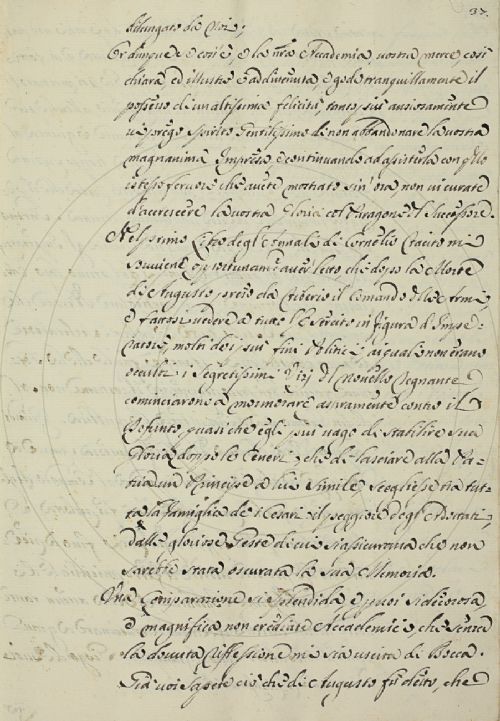 37.
di Voi;
Or dunque è così, e la nr̃a Academia, vostra mercè, così
chiara, ed illustre è addivenuta, e gode tranquillamente il
possesso di un altissima felicità, tanto più ansiosamente
vi prego Spirito Gentilissimo di non abbandonare la vostra
magnanima Impresa, e continuando ad assisterla con qllo
istesso fervore che avete mostrato sin' ora non vi curate
d'accrescere la vostra Gloria col Paragone del Successore.
Nel primo Libro degl' Annali di Cornelio Tacito mi
souviene opportunamẽ aver letto che dopo la Morte
di Augusto preso da Tiberio il Comando dell' Armi,
e fattosi vedere a tutto l'Esercito in figura d'Impe-
ratore, molti de i più fini Politici, ai quali non erano
occulti i Segretissimi Vizj del Novello Regnante
cominciarono a mormorare acramente contro il
Defunto, quasi che egli più vago di stabilire sua
Gloria doppo le Ceneri, che di lasciare alla Pa-
tria un Principe a lui Simile, scegliesse tra tut-
ta la famiglia de i Cesari il peggiore degl' Adottati,
dalle gloriose Geste di cui s'assicurava che non
sarebbe stata oscurata la Sua Memoria.
Una Comparazione si splendida e puoi si decorosa,
e magnifica non crediate Accademici, che senza
la dovuta Riflessione mi sia uscita di Bocca.
Già voi Sapete ciò che di Augusto fù detto, che